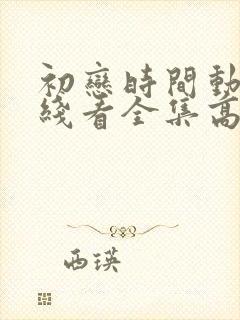 初戀時間動
綫看全集高
西瑛